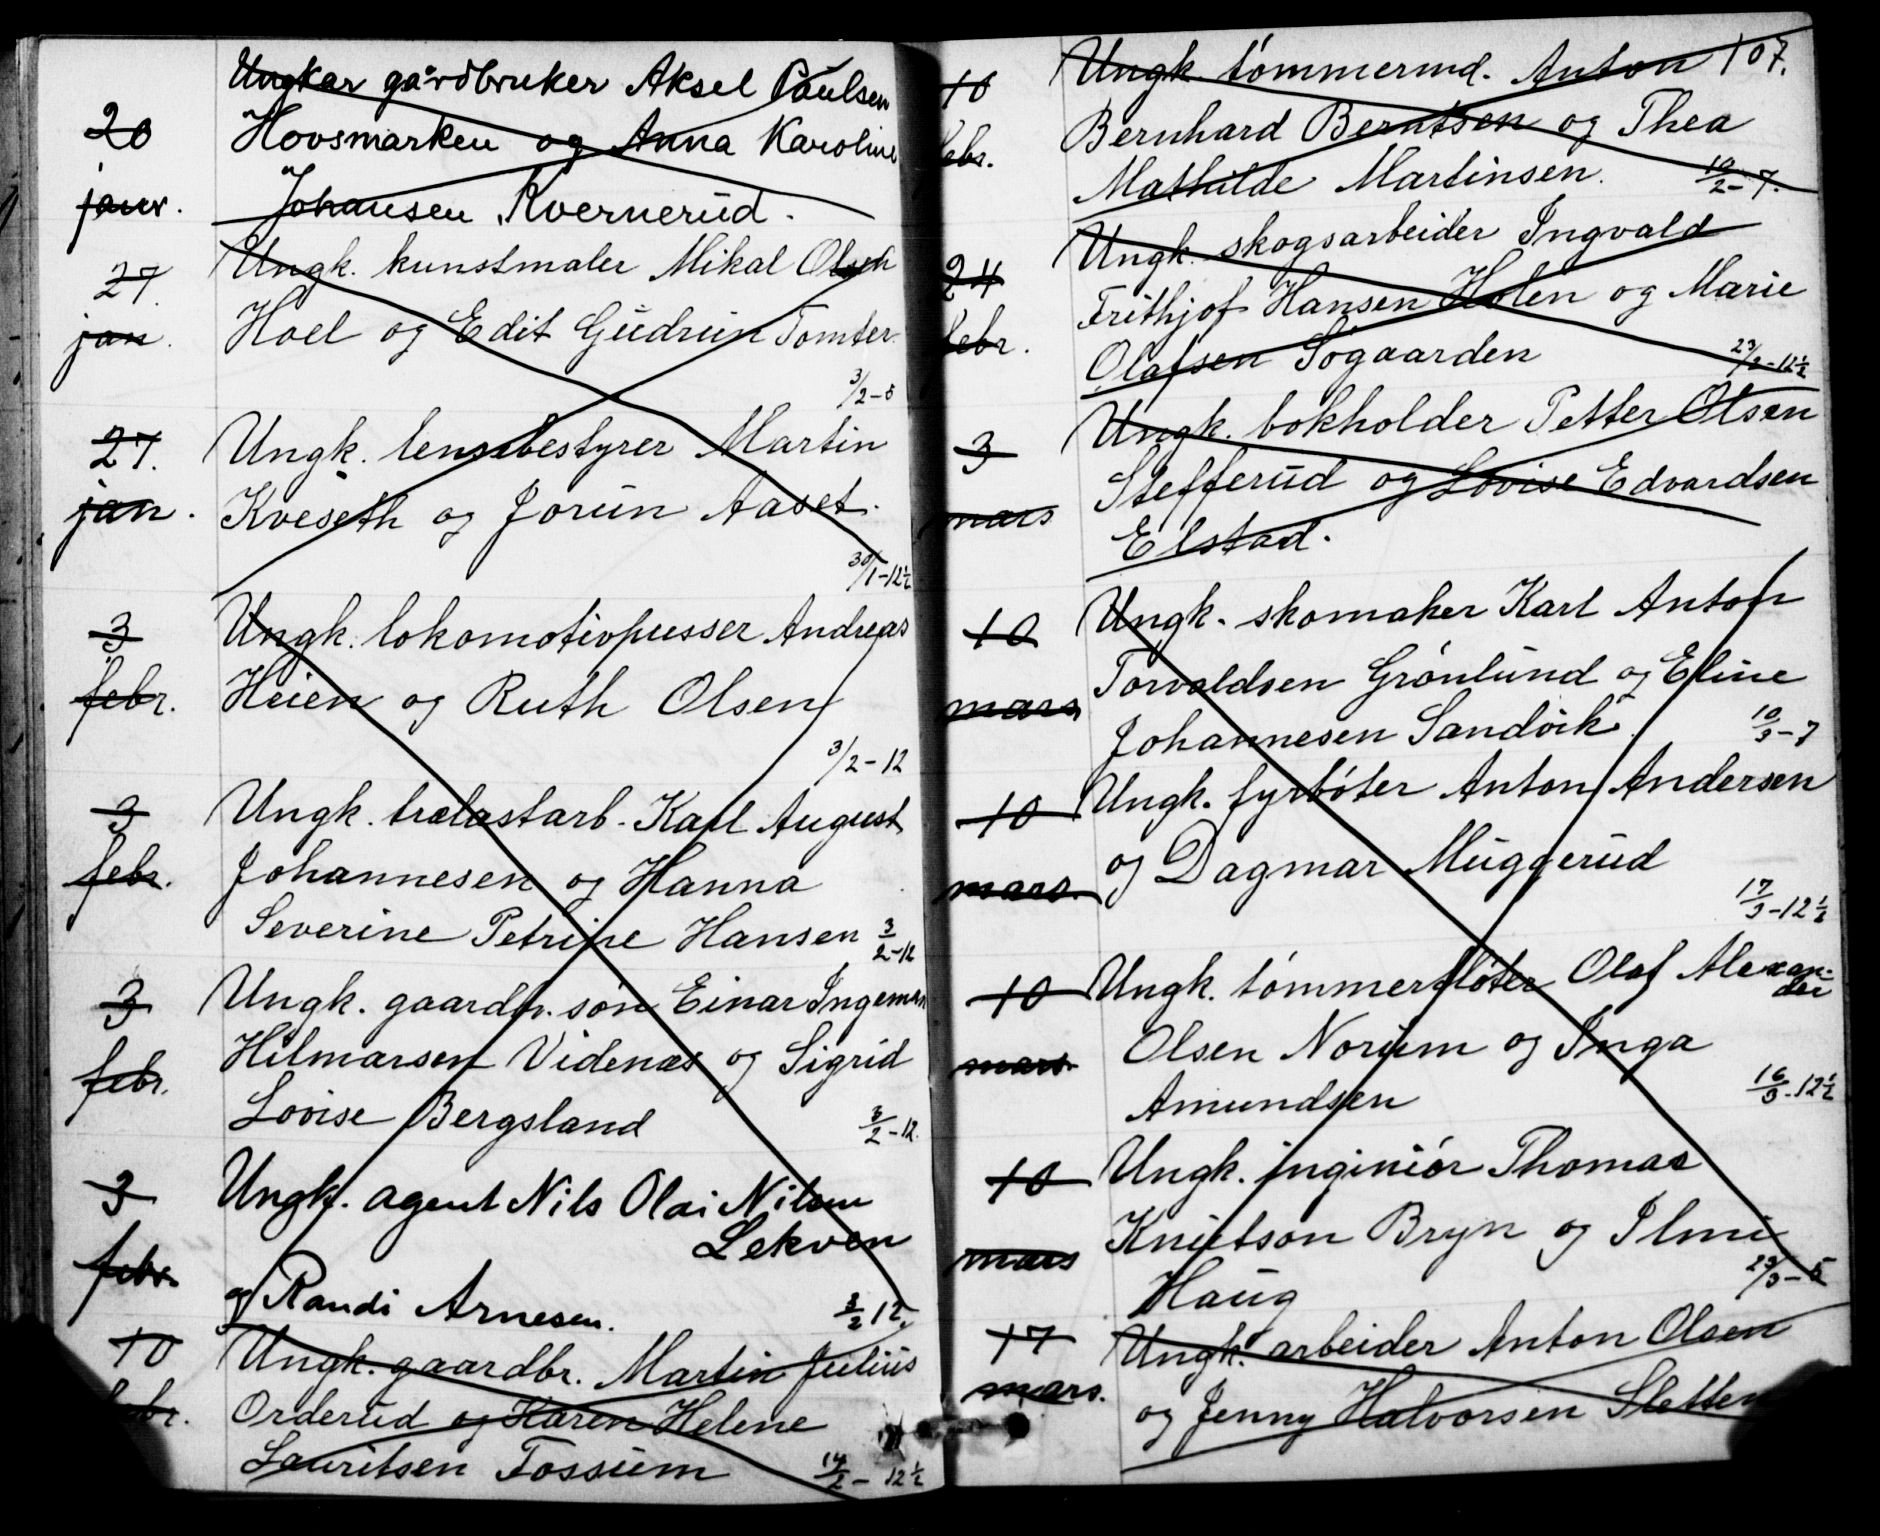 Ungkar gårdbruker Aksel Paulsen
20 Hovsmarken og Anna Karoline
janr. Johansen Kvernerud.
27. Ungk. kunstmaler Mikal
jan. Hoel og Edit Gudrun Tomter.
3/2-5
27. Ungk. lensbestyrer Martin
jan. Kveseth og Jorun Aaset.
30/1-12½
3 Ungk. lokomotivpusser Andreas
febr. Heien og Ruth Olsen
3/2-12
3 Ungk. trælastarb. Karl August
febr. Johannesen og Hanna
Severine Petrine Hansen 3/2-12
3 Ungk. gaardbr. søn Einar Ingeman
febr. Hilmarsen Videnæs og Sigrid
Lovise Bergsland 3/2-12.
3 Ungk. agent Nils Olai Nilsen
Lekven
febr. og Randi Arnesen. 3/2 12.
10 Ungk. gaardbr. Martin Julius
febr. Orderud og Karen Helene
Lauritsen Fossum 14/2-12½
107.
10 Ungk. tømmermd. Anton
febr. Bernhard Berntsen og Thea
Mathilde Martinsen. 10/2-7.
24 Ungk. skogsarbeider Ingvald
febr. Frithjof Hansen Holen og Marie
Olafsen Sogaarden 23/2-12½
3 Ungk. bokholder Petter Olsen
mars Stefferud og Lovise Edvardsen
Elstad.
10 Ungk. skomaker Karl Anton
mars Torvaldsen Grønlund og Eline
Johannesen Sandvik. 10/3-7
10 Ungk. fyrbøter Anton Andersen
mars. og Dagmar Muggerud
17/3-12½
10 Ungk. tømmerfløter Olaf Alexan-
der
mars. Olsen Norum og Inga
Amundsen 16/3-12½
10 Ungk. inginiør Thomas
mars Knutson Bryn og Ilmi
Haug 23/3-5
17 Ungk. arbeider Anton Olsen
mars. og Jenny Halvorsen Sletten